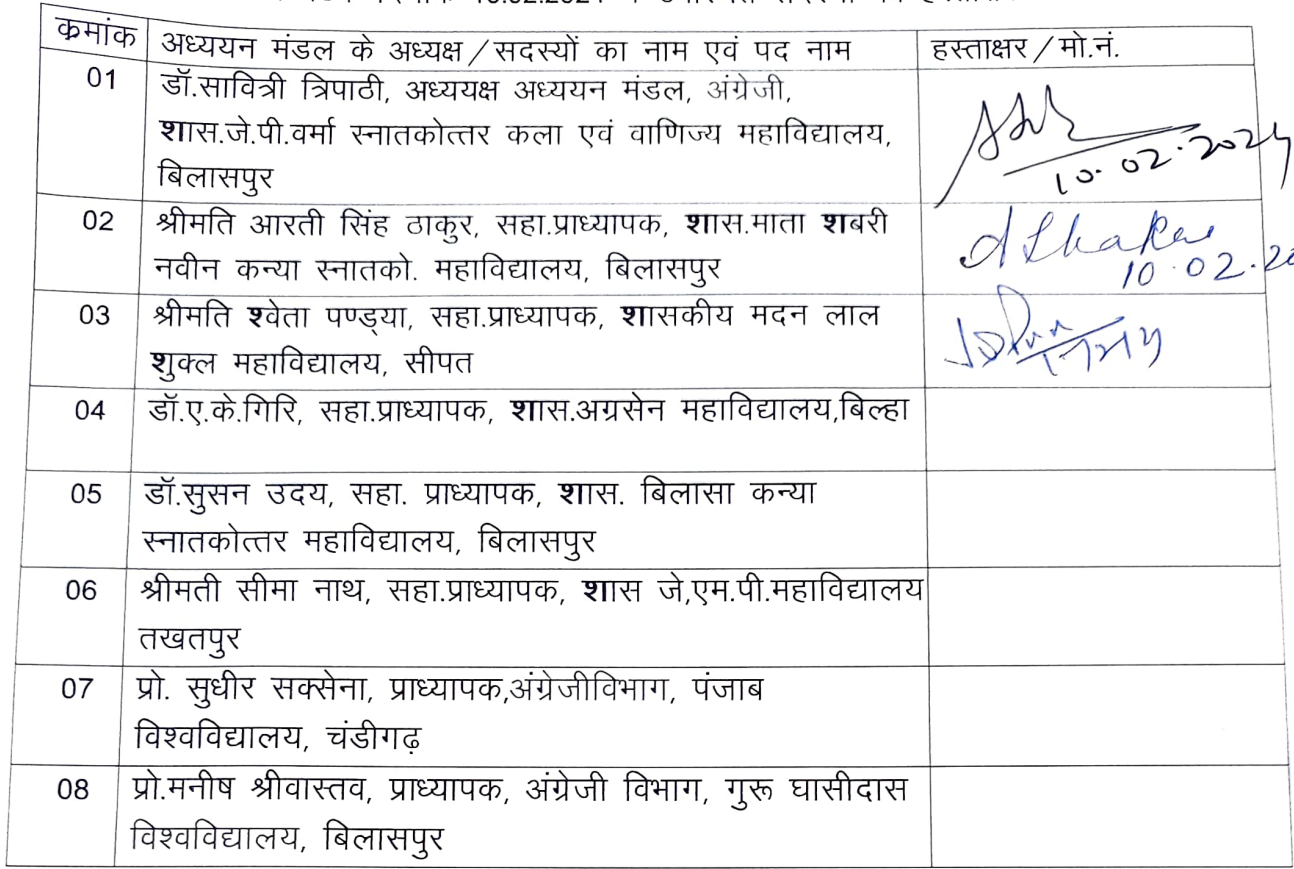 कमांक अध्ययन मंडल के अध्यक्ष/सदस्यों का नाम एवं पद नाम हस्ताक्षर/मो.नं.
01 डॉ.सावित्री त्रिपाठी, अध्ययक्ष अध्ययन मंडल, अंग्रेजी,
शास.जे.पी.वर्मा स्नातकोत्तर कला एवं वाणिज्य महाविद्यालय,
बिलासपुर
10.02.2024
02 श्रीमति आरती सिंह ठाकुर, सहा.प्राध्यापक, शास.माता शबरी
नवीन कन्या स्नातको. महाविद्यालय, बिलासपुर
10.02.20
03 श्रीमति श्वेता पण्ड्या, सहा.प्राध्यापक, शासकीय मदन लाल
शुक्ल महाविद्यालय, सीपत
04 डॉ.ए.के.गिरि, सहा.प्राध्यापक, शास.अग्रसेन महाविद्यालय,बिल्हा
05 डॉ.सुसन उदय, सहा. प्राध्यापक, शास. बिलासा कन्या
स्नातकोत्तर महाविद्यालय, बिलासपुर
06 श्रीमती सीमा नाथ, सहा.प्राध्यापक, शास जे,एम.पी.महाविद्यालय
तखतपुर
07 प्रो. सुधीर सक्सेना, प्राध्यापक,अंग्रेजीविभाग, पंजाब
विश्वविद्यालय, चंडीगढ़
08 प्रो.मनीष श्रीवास्तव, प्राध्यापक, अंग्रेजी विभाग, गुरू घासीदास
विश्वविद्यालय, बिलासपुर